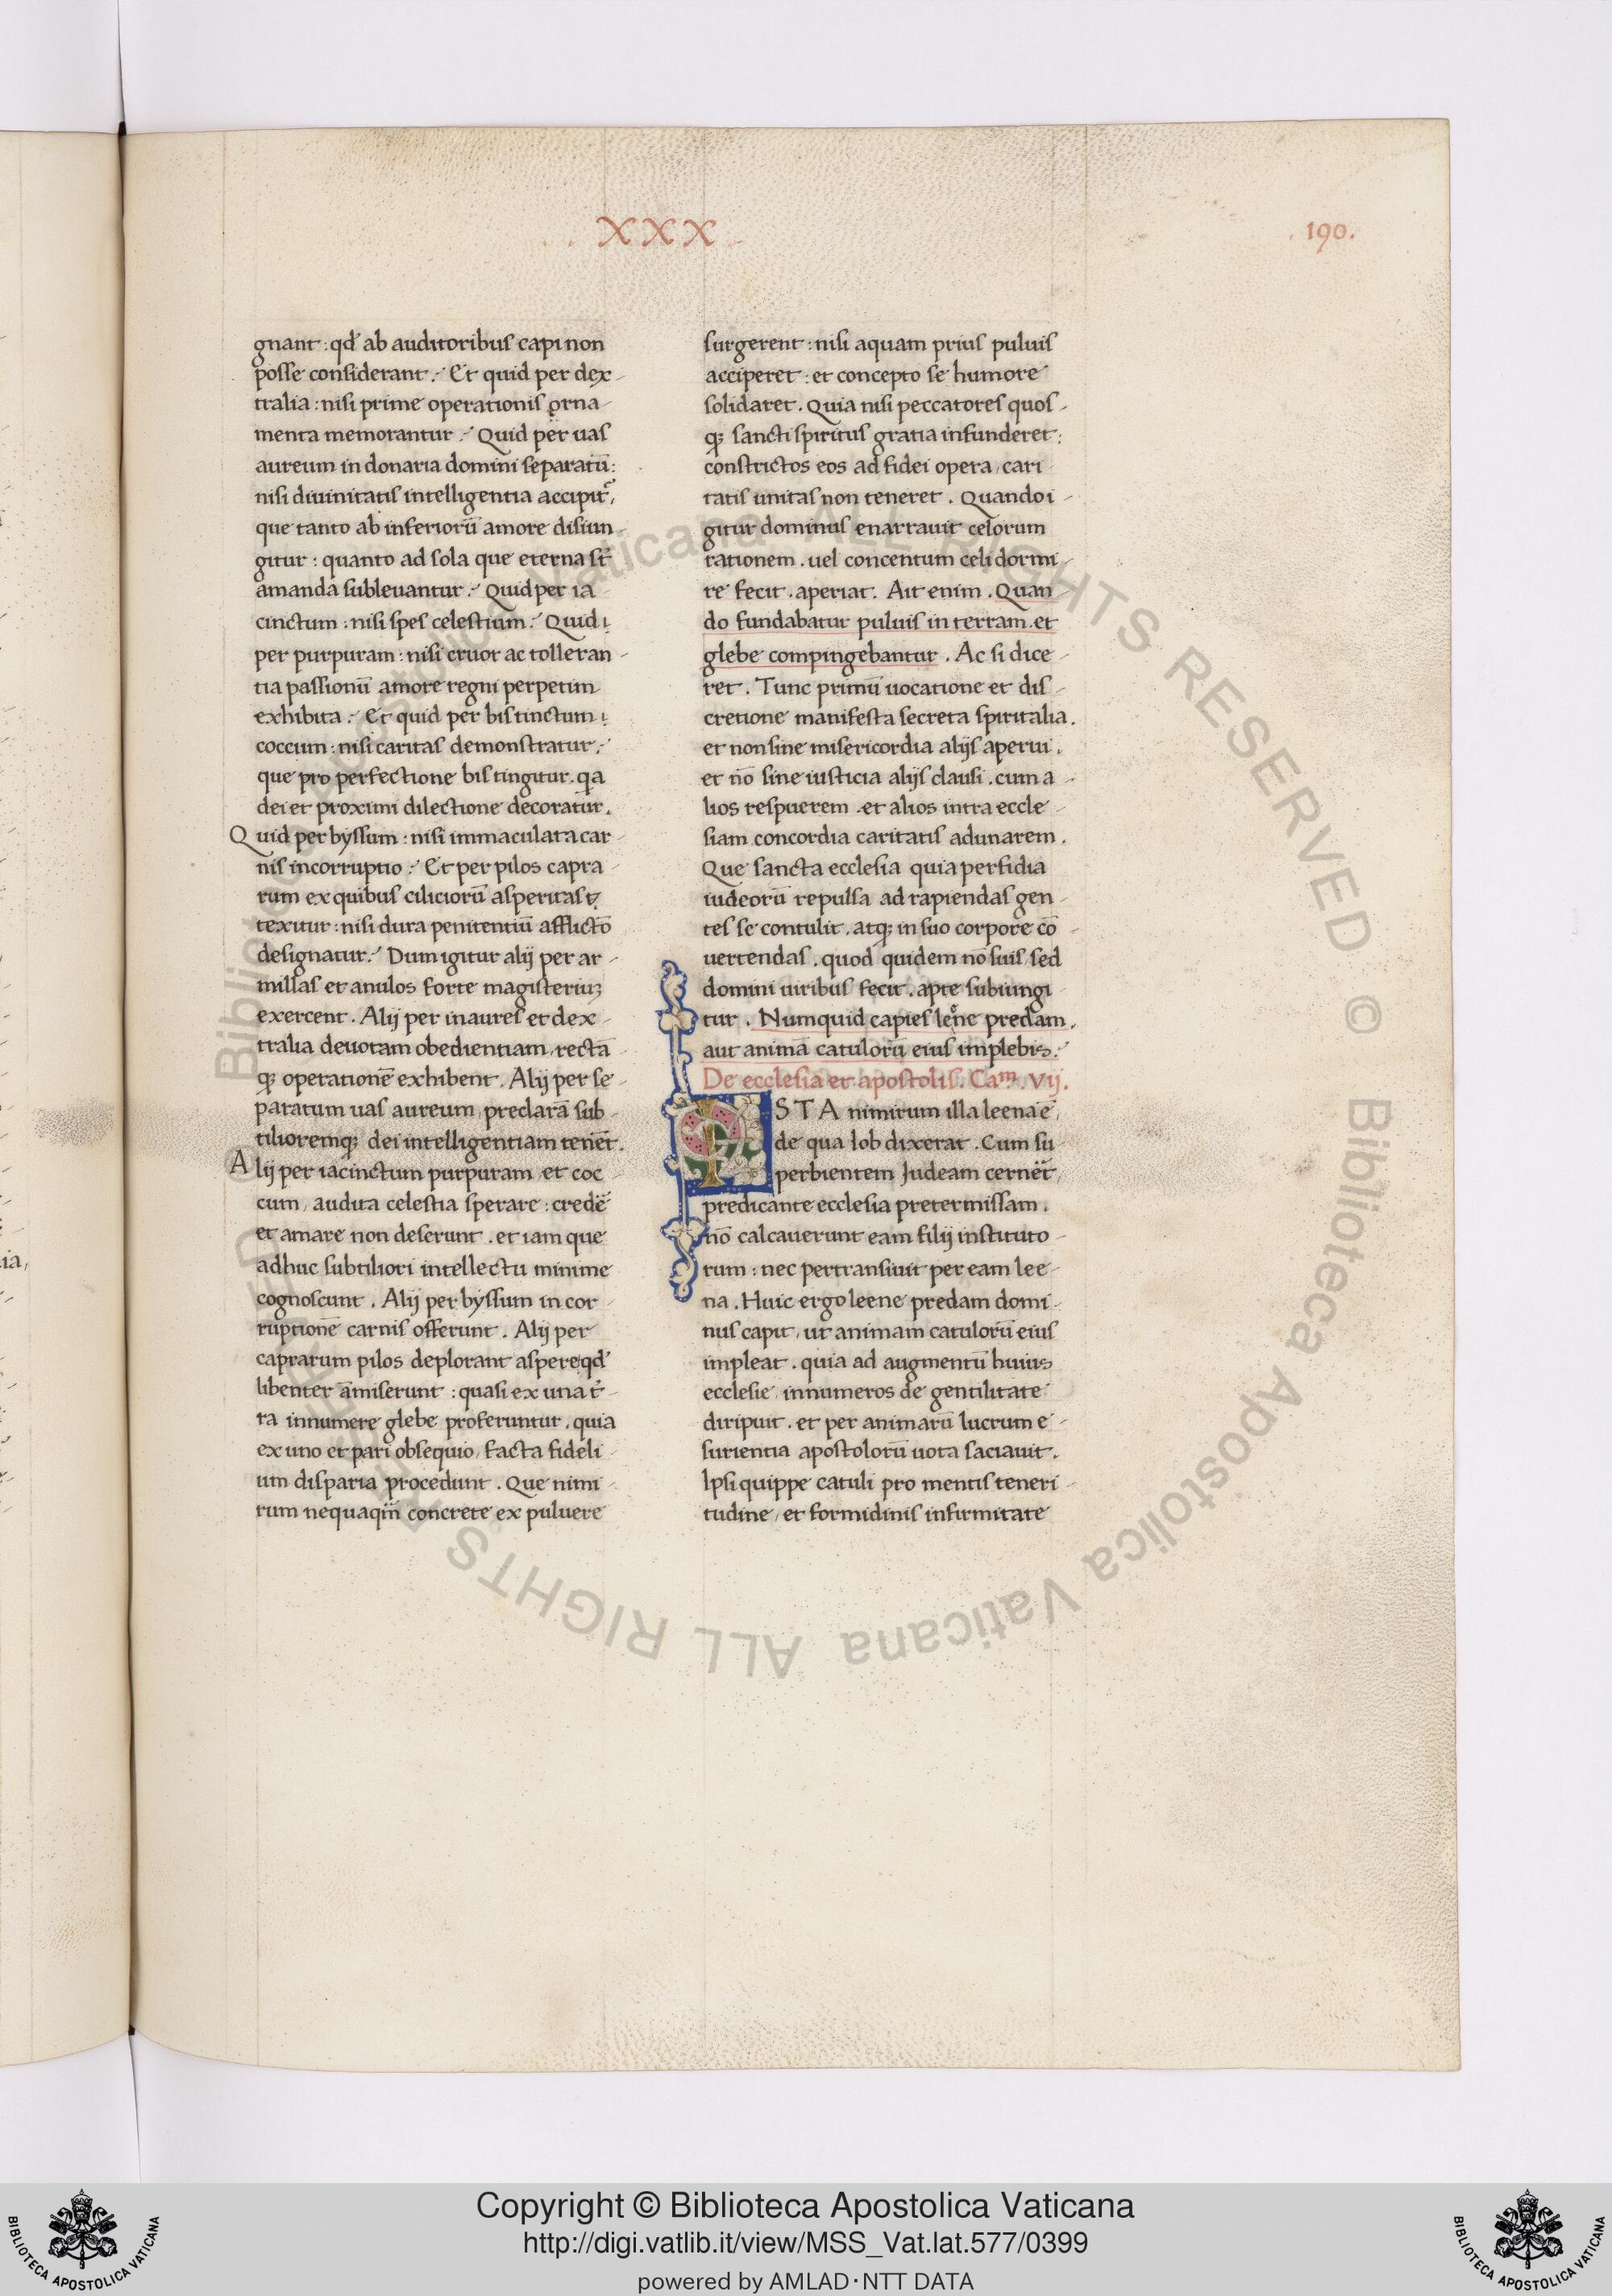 XXX
190.
gnant : qd̄ ab auditoribus capi non
posse considerant. Et quid per dex-
tralia : nisi prime operationis orna-
menta memorantur. Quid per uas
aureum in donaria domini separatū:
nisi diuinitatis intelligentia accipit᷑,
que tanto ab inferiorū amore disiun-
gitur : quanto ad sola que eterna st̄
amanda subleuantur. Quid per ia-
cinctum : nisi spes celestium. Quid
per purpuram : nisi cruor ac tolleran-
tia passionū amore regni perpetim
exhibita. Et quid per bis tinctum
coccum : nisi caritas demonstratur.
que pro perfectione bis tingitur. qa
dei et proximi dilectione decoratur.
Quid per byssum : nisi immaculata car-
nis incorruptio. Et per pilos capra-
rum ex quibus ciliciorū asperitas
texitur : nisi dura penitentiū afflictō
designatur. Dum igitur alij per ar-
millas et anulos forte magisteriuꝫ
exercent. Alij per inaures et dex-
tralia deuotam obedientiam, rectā
qꝫ operationē exhibent. Alij per se-
paratum uas aureum, preclarā sub-
tilioremqꝫ dei intelligentiam tenēt.
Alij per iacinctum purpuram et coc-
cum, audita celestia sperare : credē
et amare non deserunt. et iam que
adhuc subtiliori intellectu minime
cognoscunt. Alij per byssum in cor-
ruptionē carnis offerunt. Alij per
caprarum pilos deplorant aspere qd̄
libenter amiserunt : quasi ex una t̄-
ra innumere glebe proferuntur. quia
ex uno et pari obsequio, facta fideli-
um disparia procedunt. Que nimi-
rum nequaqm̄ concrete ex puluere
surgerent : nisi aquam prius puluis
acciperet : et concepto se humore
solidaret. Quia nisi peccatores quos-
qꝫ sancti spiritus gratia infunderet:
constrictos eos ad fidei opera, cari-
tatis unitas non teneret. Quando i-
gitur dominus enarrauit celorum
rationem. uel concentum celi dormi-
re fecit. aperiat. Ait enim. Quan-
do fundabatur puluis in terram. et
glebe compingebantur. Ac si dice-
ret. Tunc primū uocatione et dis-
cretione manifesta secreta spiritalia.
et non sine misericordia alijs aperui.
et nō sine iusticia alijs clausi. cum a-
lios respuerem. et alios intra eccle-
siam concordia caritatis adunarem.
Que sancta ecclesia quia perfidia
iudeorū repulsa ad rapiendas gen-
tes se contulit. atqꝫ in suo corpore cō-
uertendas. quod quidem nō suis, sed
domini uiribus fecit. apte subiungi-
tur. Numquid capies leene predam.
aut animā catulorū eius implebis.
De ecclesia et apostolis. Cam. Vij.
ISTA nimirum illa leena ē,
de qua Iob dixerat. Cum su-
perbientem Judeam cernēt,
predicante ecclesia pretermissam.
nō calcauerunt eam filij instituto-
rum : nec pertransiuit per eam lee-
na. Huic ergo leene predam domi-
nus capit, ut animam catulorū eius
impleat. quia ad augmentū huius
ecclesie, innumeros de gentilitate
diripuit. et per animarū lucrum e-
surientia apostolorū uota saciauit.
Ipsi quippe catuli pro mentis teneri-
tudine, et formidinis infirmitate
ia,
Biblioteca Apostolica Vaticana ALL RIGHTS RESERVED © Biblioteca Apostolica Vaticana ALL RIGHTS RESERVED
Copyright © Biblioteca Apostolica Vaticana
http://digi.vatlib.it/view/MSS_Vat.lat.577/0399
powered by AMLAD·NTT DATA
BIBLIOTECA APOSTOLICA VATICANA
BIBLIOTECA APOSTOLICA VATICANA